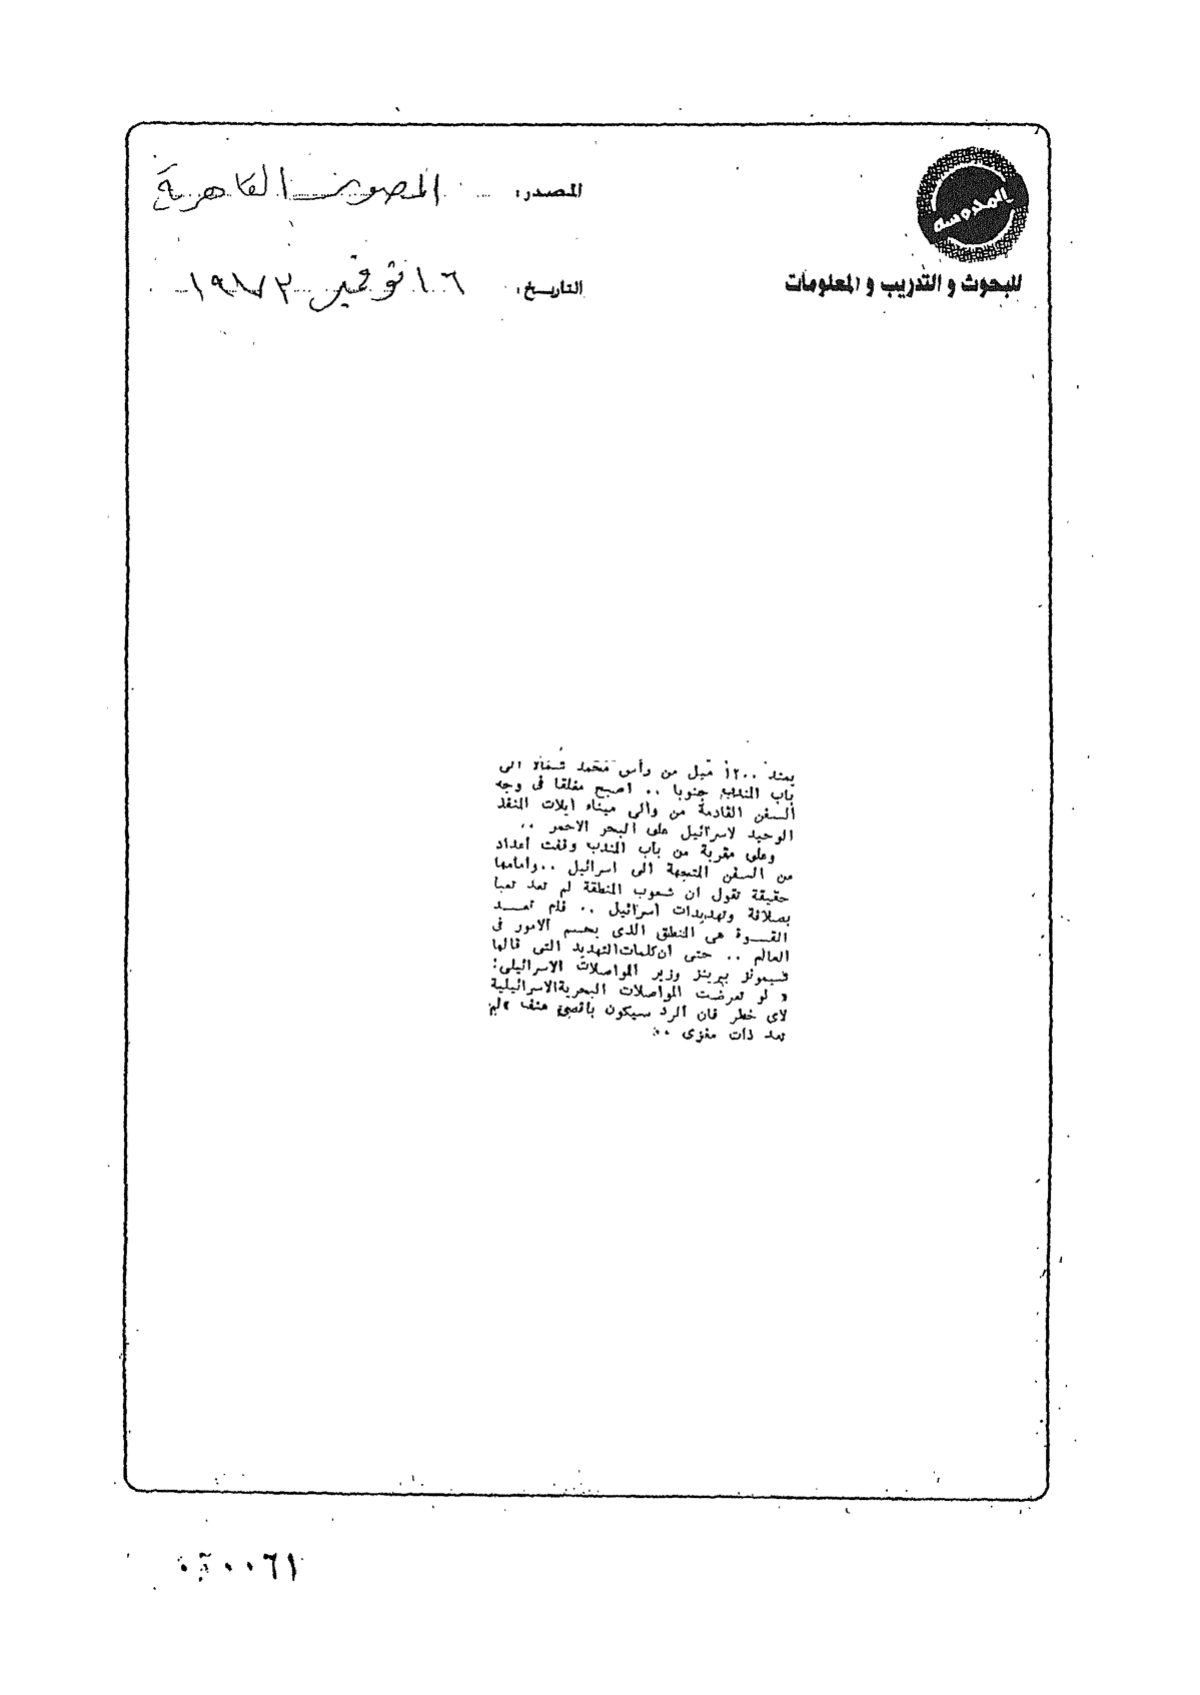 المصدر: المصور القاهرية
المدوسة
للبحوث و التدريب و المعلومات
التاريخ: ١٦ نوفمبر ١٩٧٣
يمتد ١٢٠٠ ميل من رأس محمد شمالا الى
باب المندب جنوبا .. اصبح مغلقا فى وجه
السفن القادمة من والى ميناء ايلات المنفذ
الوحيد لاسرائيل على البحر الاحمر ..
وعلى مقربة من باب المندب وقفت أعداد
من السفن المتجهة الى اسرائيل .. وامامها
حقيقة تقول ان شعوب المنطقة لم تعد تعبا
بصلافة وتهديدات اسرائيل .. فلم تعـــد
القـــوة هى المنطق الذى يحسم الامور فى
العالم .. حتى ان كلمات التهديد التى قالها
شيمونز بيريز وزير المواصلات الاسرائيلى:
« لو تعرضت المواصلات البحرية الاسرائيلية
لاى خطر فان الرد سيكون باقصى عنف » لم
تعد ذات مغزى ..